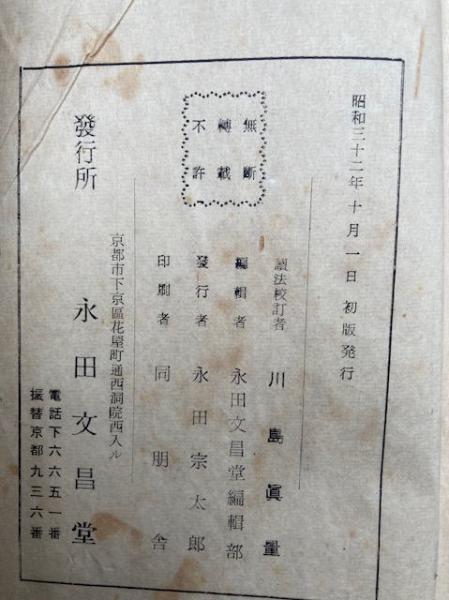 昭和三十二年十月一日 初版発行
無断
轉載
不許
讀法校訂者 川島眞量
編輯者 永田文昌堂編輯部
發行者 永田宗太郎
印刷者 同朋舎
京都市下京區花屋町通西洞院西入ル
發行所 永田文昌堂
電話下六六五一番
振替京都九三六番